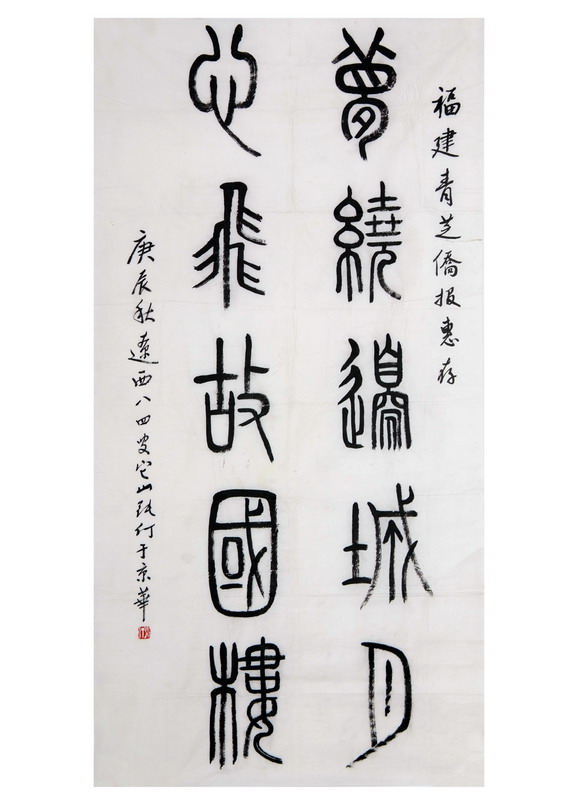 福建青芝僑报惠存
夢繞邊城月
心飛故國樓
庚辰秋遼西八四叟它山 于京華